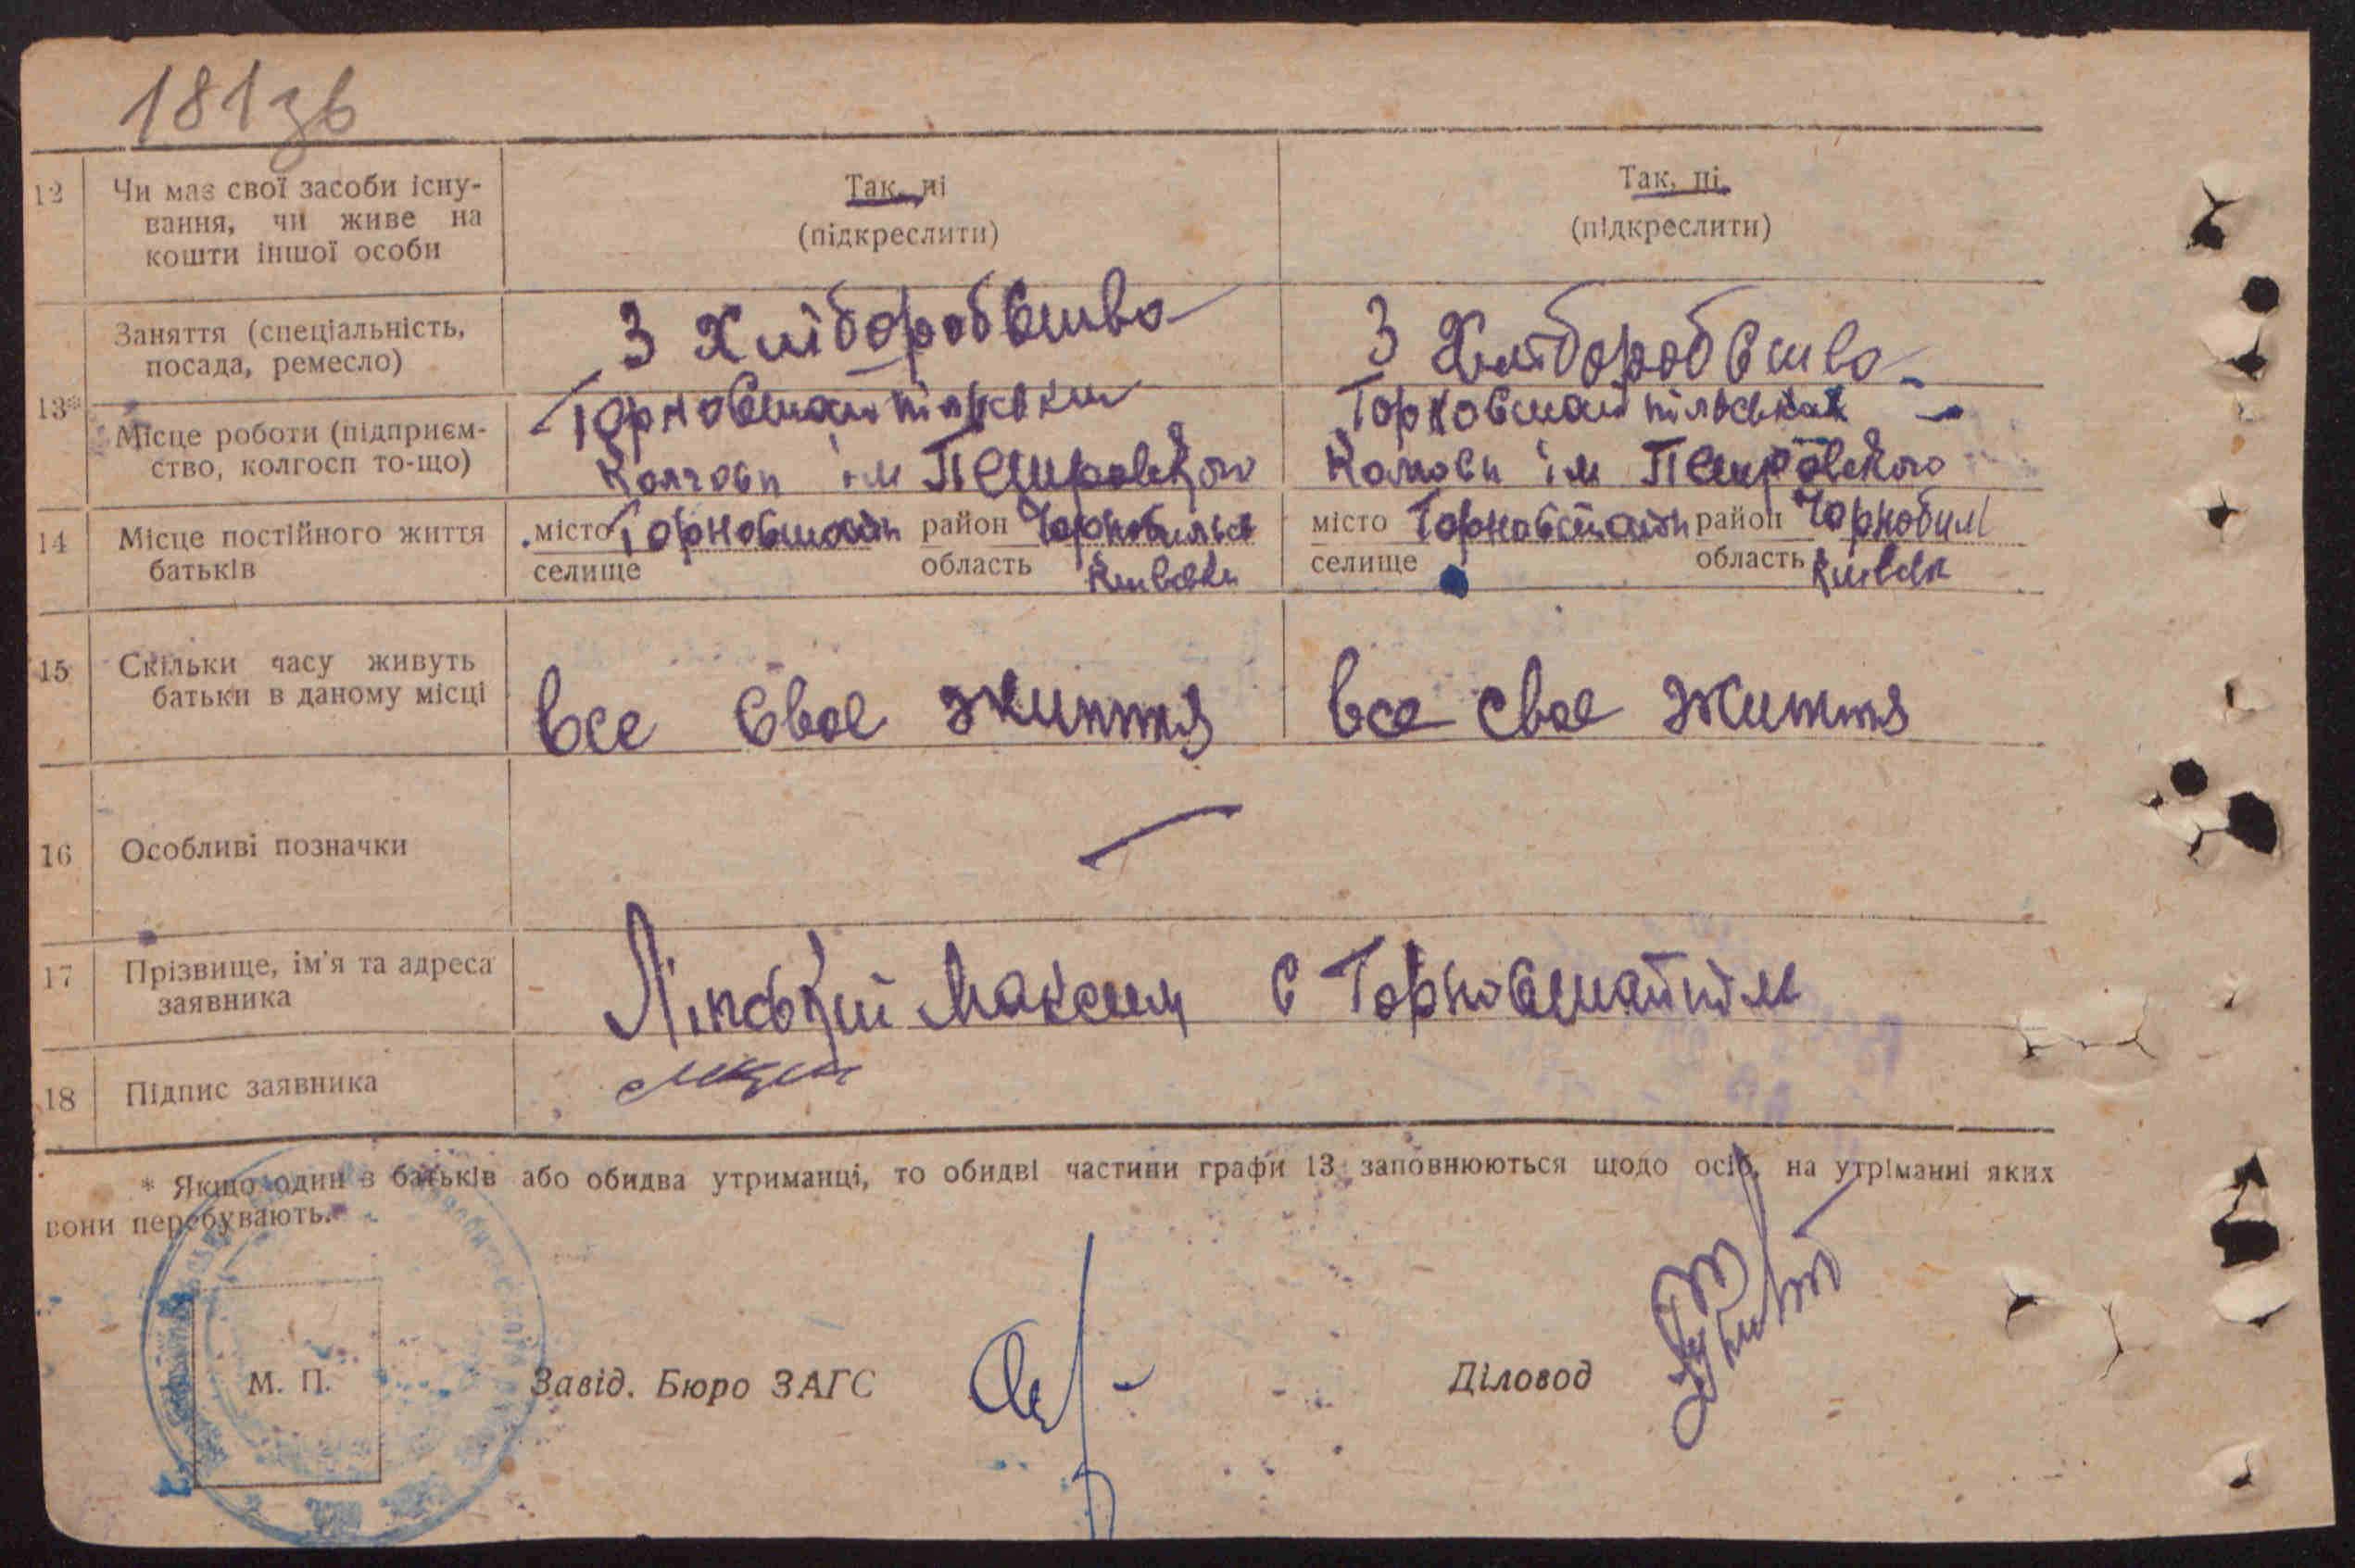 181зв
12 Чи має свої засоби існу-
вання, чи живе на
кошти іншої особи
Так, ні
(підкреслити)
Так, ні
(підкреслити)
13*
Заняття (спеціальність,
посада, ремесло)
З Хліборобства
З Хліборобства
Місце роботи (підприєм-
ство, колгосп то-що)
Горностайпільськи
Колгосп ім Петровского
Горностайпільська
Колгосп ім Петровского
14 Місце постійного життя
батьків
місто Горностайп район Чорнобильсь
селище область Київськ
місто Горностайп район Чорнобил
селище область Київск
15 Скільки часу живуть
батьки в даному місці
все свое життя
все свое життя
16 Особливі позначки
17 Прізвище, ім'я та адреса
заявника
Лінський Максим с Горностайпіл
18 Підпис заявника
* Якщо один з батьків або обидва утриманці, то обидві частини графи 13 заповнюються щодо осіб, на утріманні яких
вони перебувають.
М. П.
Завід. Бюро ЗАГС
Діловод